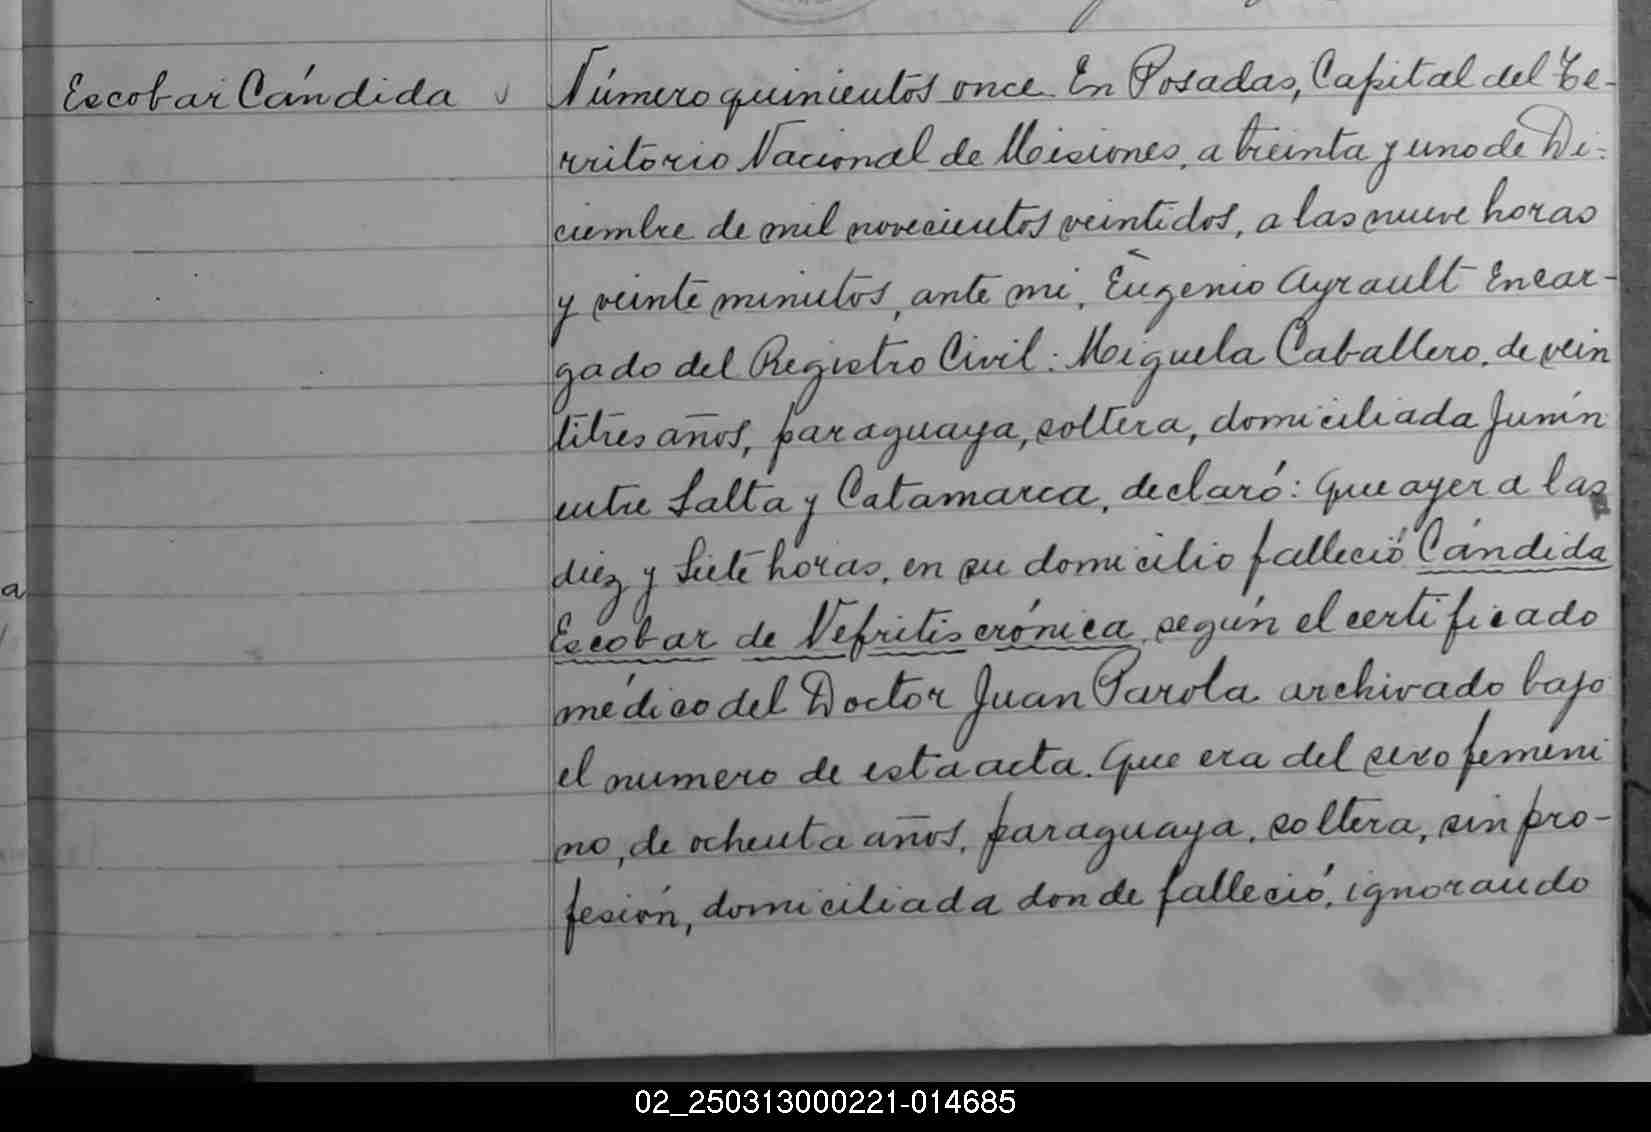 Escobar Cándida
Número quinientos once. En Posadas, Capital del Te-
rritorio Nacional de Misiones, a treinta y uno de Di-
ciembre de mil novecientos veintidos, a las nueve horas
y veinte minutos, ante mi, Eugenio Ayrault Encar-
gado del Registro Civil: Miguela Caballero, de vein
titres años, paraguaya, soltera, domiciliada Junín
entre Salta y Catamarca, declaró: Que ayer a las
diez y siete horas, en su domicilio falleció Cándida
Escobar de Nefritis crónica, según el certificado
médico del Doctor Juan Parola archivado bajo
el numero de esta acta. Que era del sexo femeni
no, de ochenta años, paraguaya, soltera, sin pro-
fesión, domiciliada donde falleció, ignorando
a
02_250313000221-014685